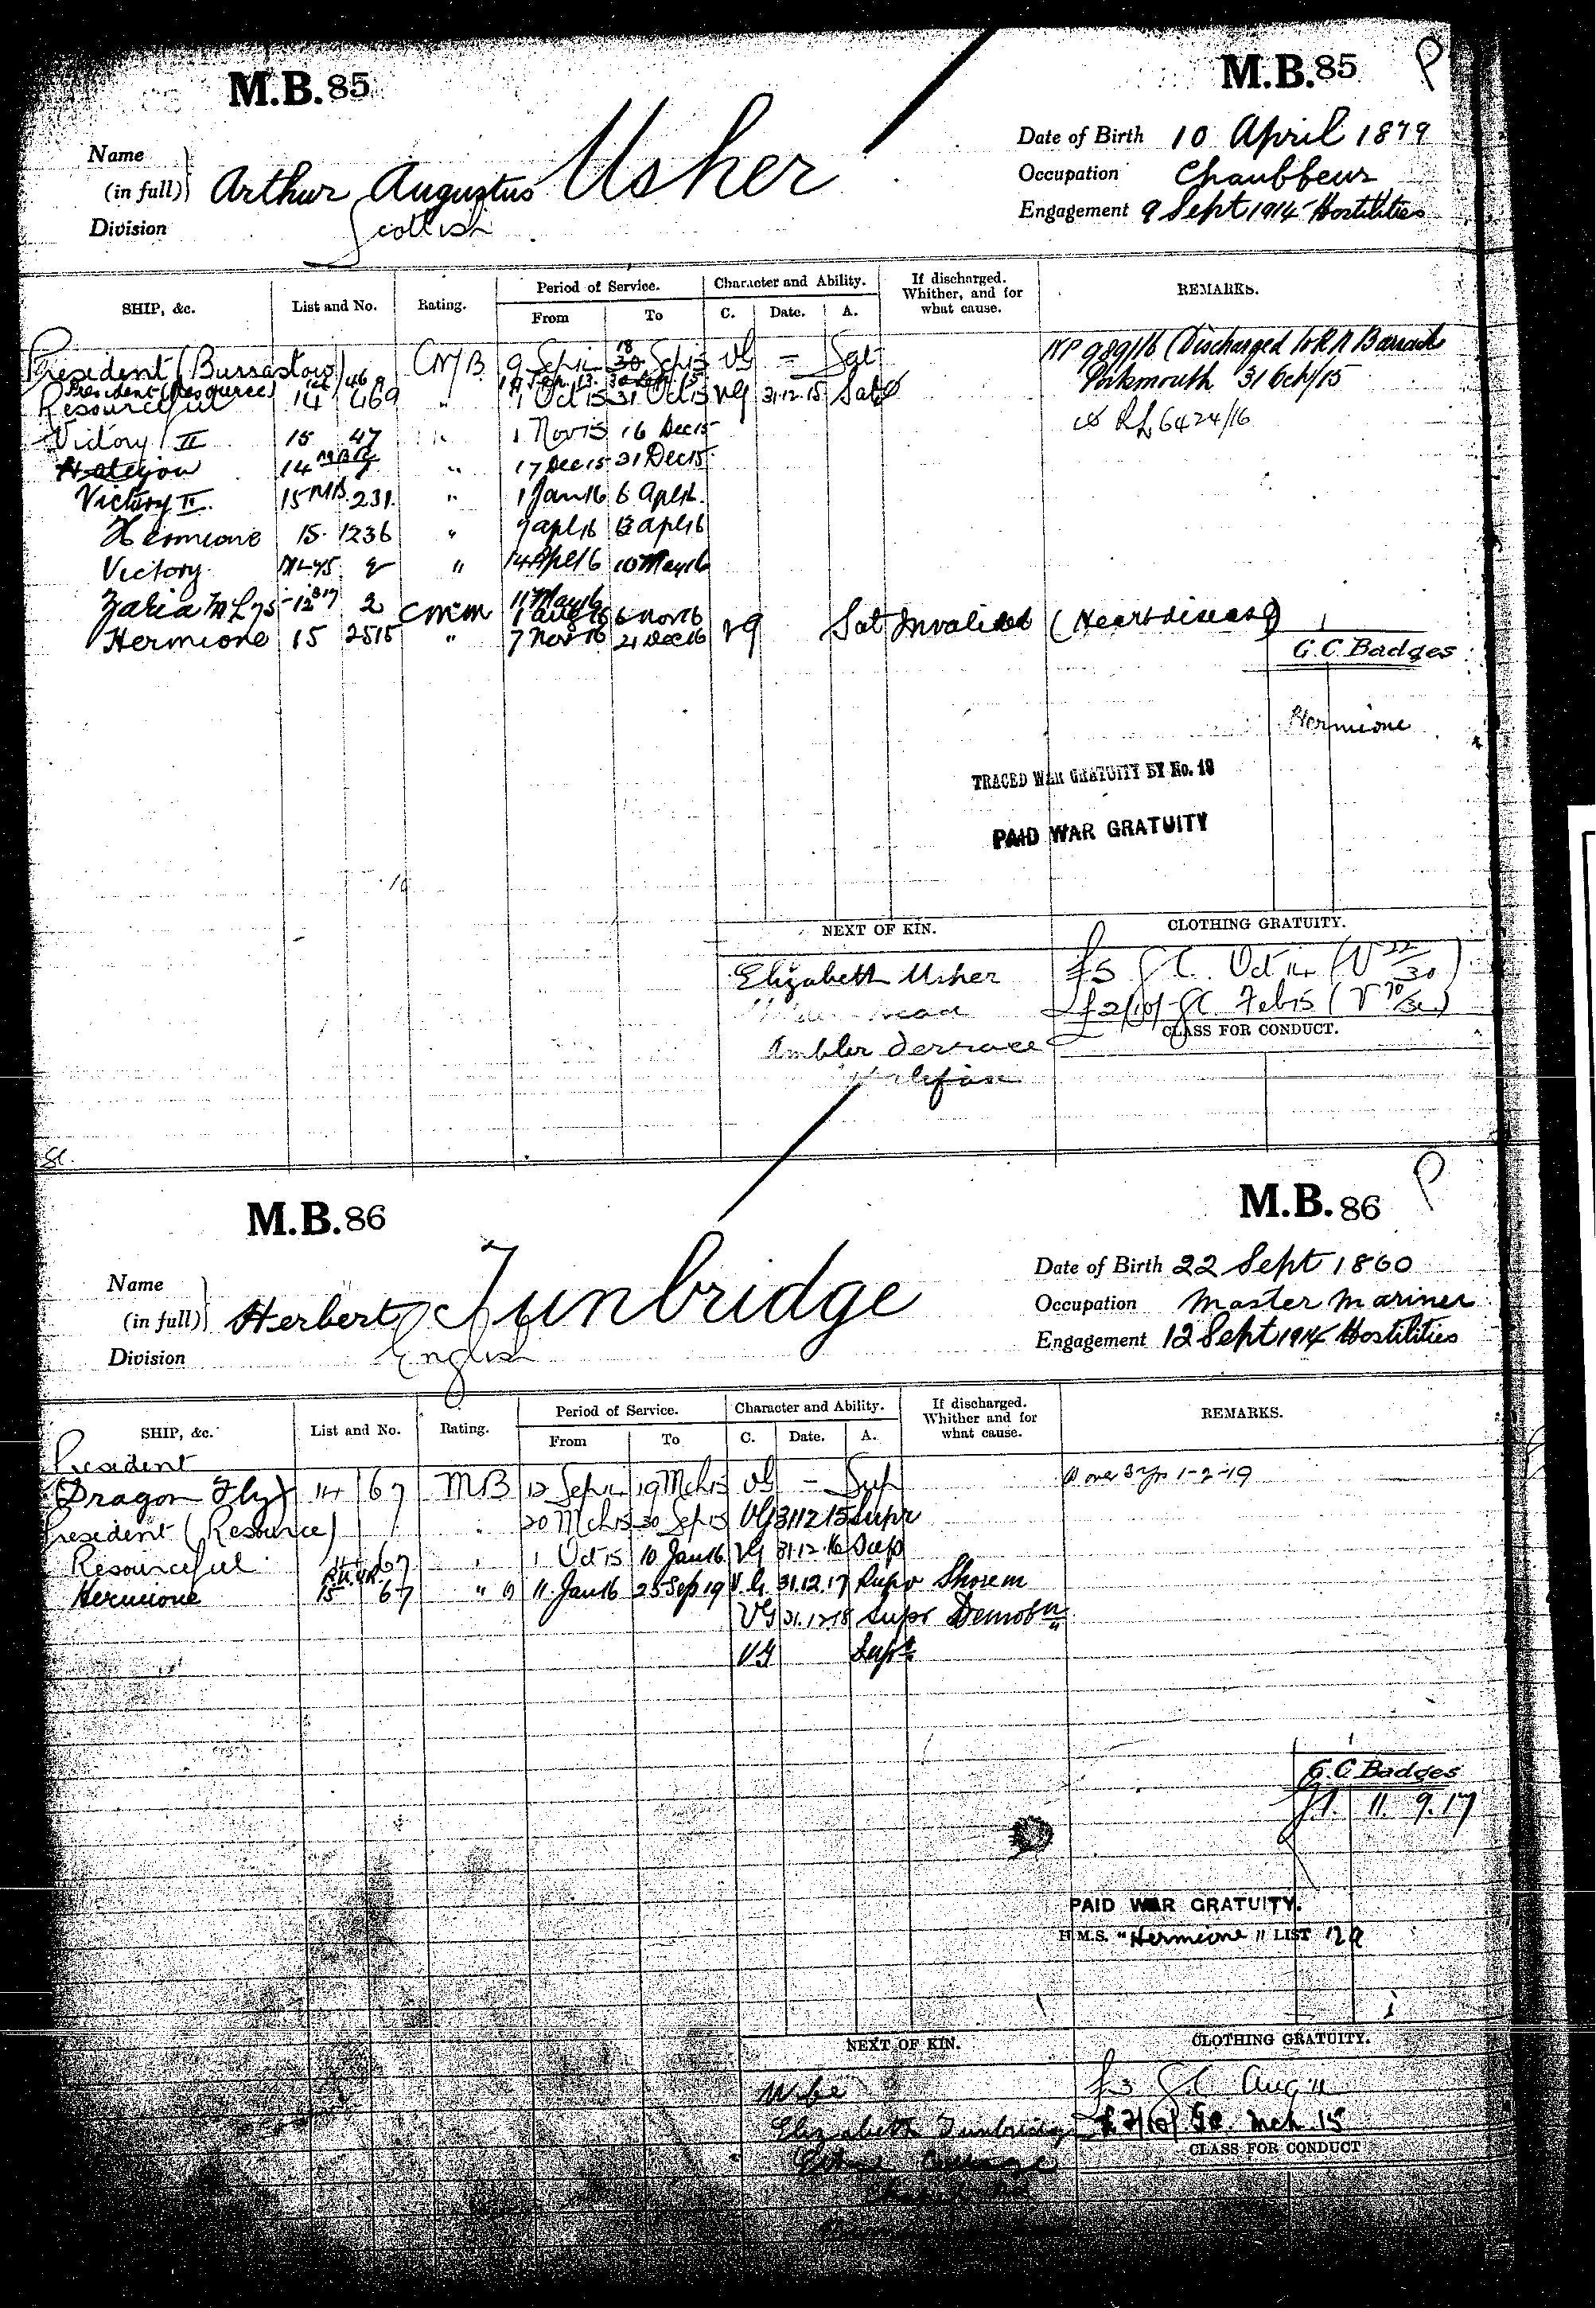 M.B. 85
M.B. 85 P
Name (in full) Arthur Augustus Usher
Division Scottish
Date of Birth 10 April 1879
Occupation Chauffeur
Engagement 9 Sept 1914 Hostilities
SHIP, &c. List and No. Rating. Period of Service. Character and Ability. If discharged. Whither, and for what cause. REMARKS.
From To C. Date. A.
President (Bursastow) CMB 9 Sep 14 VG — Sat
President (Resource)
Resourceful 14 469 " 1 Oct 15 31 Oct 15 VG 31.12.15 Sat
NP 989/16 (Discharged to RN Barracks
Portsmouth 31 Oct/15
RL 6424/16
Victory II 15 47 " 1 Nov 15 16 Dec 15
Halcyon 14 " 17 Dec 15 31 Dec 15
Victory II 15 MB 231 " 1 Jan 16 6 Apl 16
Hermione 15 1236 " 7 Apl 16 13 Apl 16
Victory " 14 Apl 16 10 May 16
Zaria 2 CMM 11 May 16
1 Aug 16 6 Nov 16
Hermione 15 2515 " 7 Nov 16 21 Dec 16 VG Sat Invalided (Heart disease)
G.C. Badges
Hermione
TRACED WAR GRATUITY BY No. 18
PAID WAR GRATUITY
NEXT OF KIN. CLOTHING GRATUITY.
Elizabeth Usher
£5 Oct 14
£2/10/- Feb 15
Ambler Terrace
Halifax
CLASS FOR CONDUCT.
M.B. 86
M.B. 86 P
Name (in full) Herbert Tunbridge
Division English
Date of Birth 22 Sept 1860
Occupation Master Mariner
Engagement 12 Sept 1914 Hostilities
SHIP, &c. List and No. Rating. Period of Service. Character and Ability. If discharged. Whither and for what cause. REMARKS.
From To C. Date. A.
President
(Dragon Fly) 14 67 MB 12 Sep 14 19 Mch 15 VG — Sup
1-2-19
President (Resource) " 20 Mch 15 30 Sep 15 VG 31 12 15 Supr
Resourceful 67 " 1 Oct 15 10 Jan 16 VG 31.12.16 Sup
Hermione 15 67 " 11 Jan 16 25 Sep 19 V.G. 31.12.17 Supr Shore
VG 31.12.18 Supr Demob
VG Supr
G.C. Badges
11. 9. 17
PAID WAR GRATUITY.
H.M.S. "Hermione" LIST 12a
NEXT OF KIN. CLOTHING GRATUITY.
Wife
Elizabeth Tunbridge
£2/10/- Mch 15
CLASS FOR CONDUCT